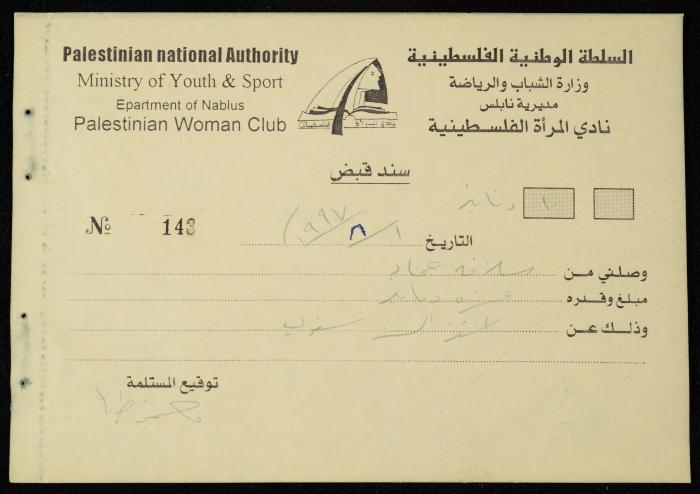 Palestinian national Authority
Ministry of Youth & Sport
Epartment of Nablus
Palestinian Woman Club
السلطة الوطنية الفلسطينية
وزارة الشباب والرياضة
مديرية نابلس
نادي المرأة الفلسطينية
سند قبض
دنانير
№ 143
التاريخ ١ / ٨ / ١٩٩٧
وصلني من سلافه حماد
مبلغ وقدره عشرة دنانير
وذلك عن اشتراك سنوي
توقيع المستلمة